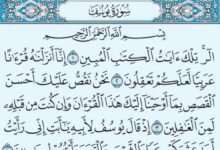 سُورَةُ يُوسُفَ
بِسْمِ اللَّهِ الرَّحْمَٰنِ الرَّحِيمِ
الٓر ۚ تِلْكَ ءَايَٰتُ الْكِتَٰبِ الْمُبِينِ ١ إِنَّآ أَنزَلْنَٰهُ قُرْءَٰنًا
عَرَبِيًّا لَّعَلَّكُمْ تَعْقِلُونَ ٢ نَحْنُ نَقُصُّ عَلَيْكَ أَحْسَنَ
الْقَصَصِ بِمَآ أَوْحَيْنَآ إِلَيْكَ هَٰذَا الْقُرْءَانَ وَإِن كُنتَ مِن قَبْلِهِۦ
لَمِنَ الْغَٰفِلِينَ ٣ إِذْ قَالَ يُوسُفُ لِأَبِيهِ يَٰٓأَبَتِ إِنِّي رَأَيْتُ